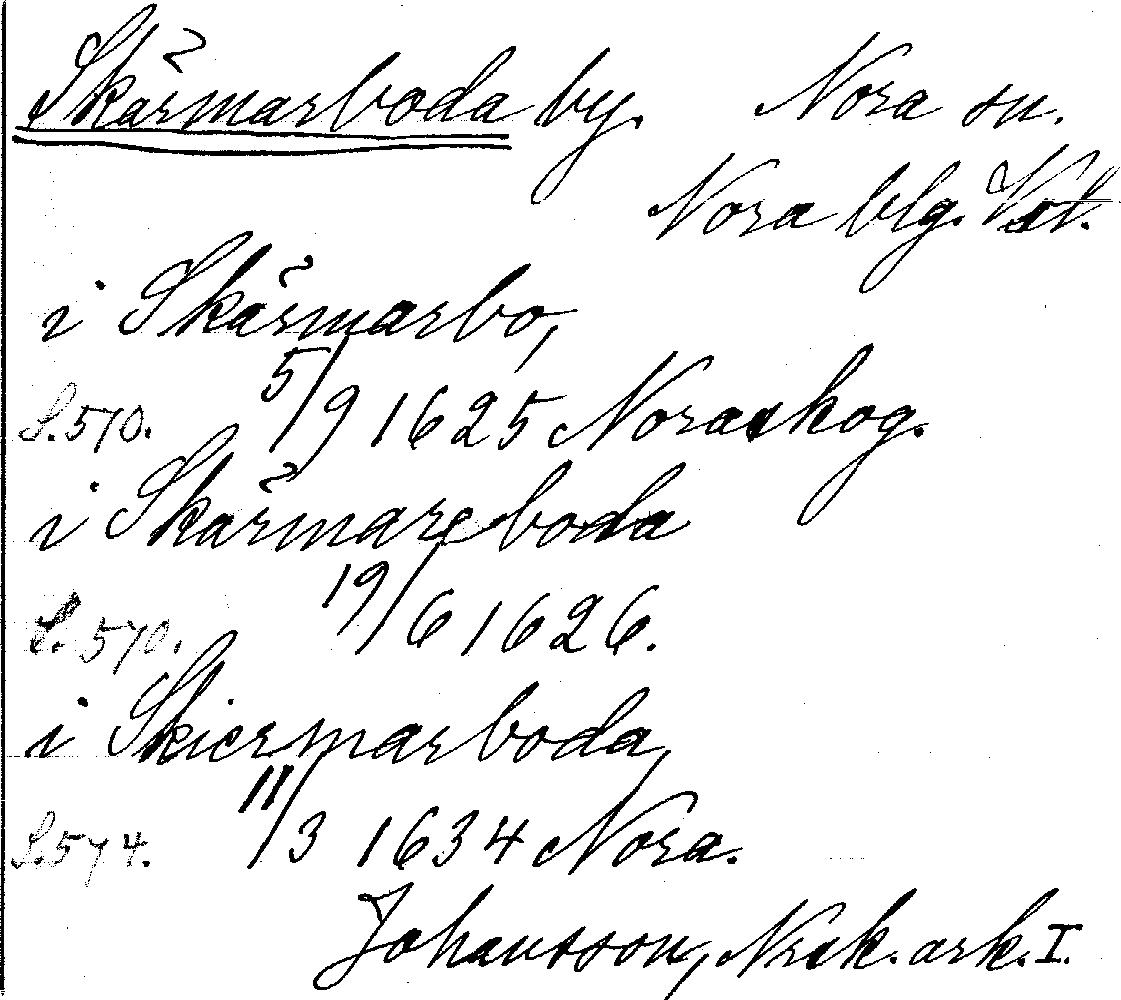 Skärmarboda by. Nora sn.
Nora blg. Vstl.
i Skärmarbo,
S. 570. 5/9 1625 Noraskog.
i Skärmareboda
S. 570. 19/6 1626.
i Skiermarboda,
S. 574. 11/3 1634 Nora.
Johansson, Nrsk. ark. I.